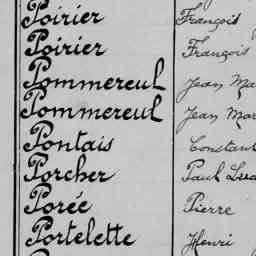 Poirier François
Poirier François
Pommereul Jean Ma
Pommereul Jean Mar
Pontais Constant
Porcher Paul
Porée Pierre
Portelette Henri